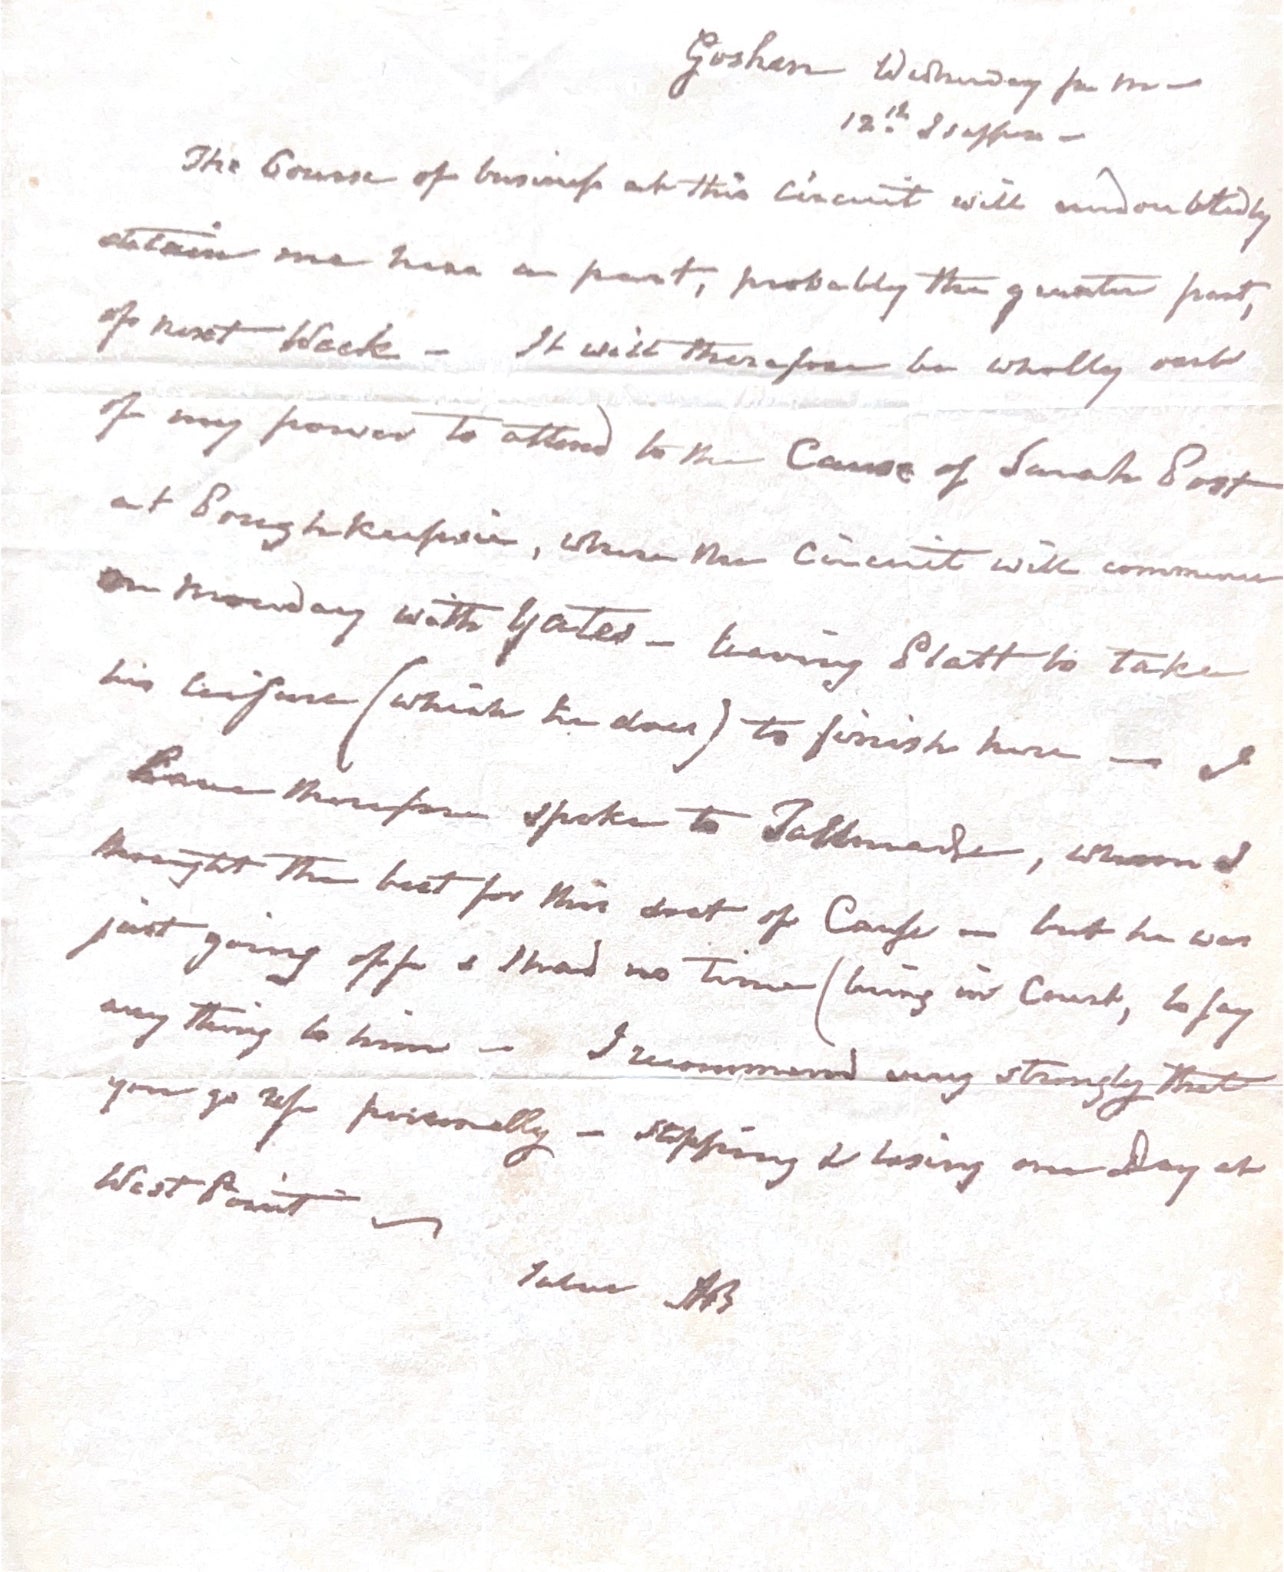 Goshen Wednesday p m —
12th Septem —
The Course of business at this Circuit will undoubtedly
detain me here a part, probably the greater part,
of next Week — It will therefore be wholly out
of my power to attend to the Cause of Sarah Post
at Poughkeepsie, where the Circuit will commence
on monday with Yates — leaving Platt to take
his leisure (which he does) to finish here — I
have therefore spoke to Tallmadge, whom I
thought the best for this sort of Cause — but he was
just going off & I had no time (being in Court, to say
any thing to him — I recommend very strongly that
you go up personally — stopping & losing one Day at
West Point —
AB